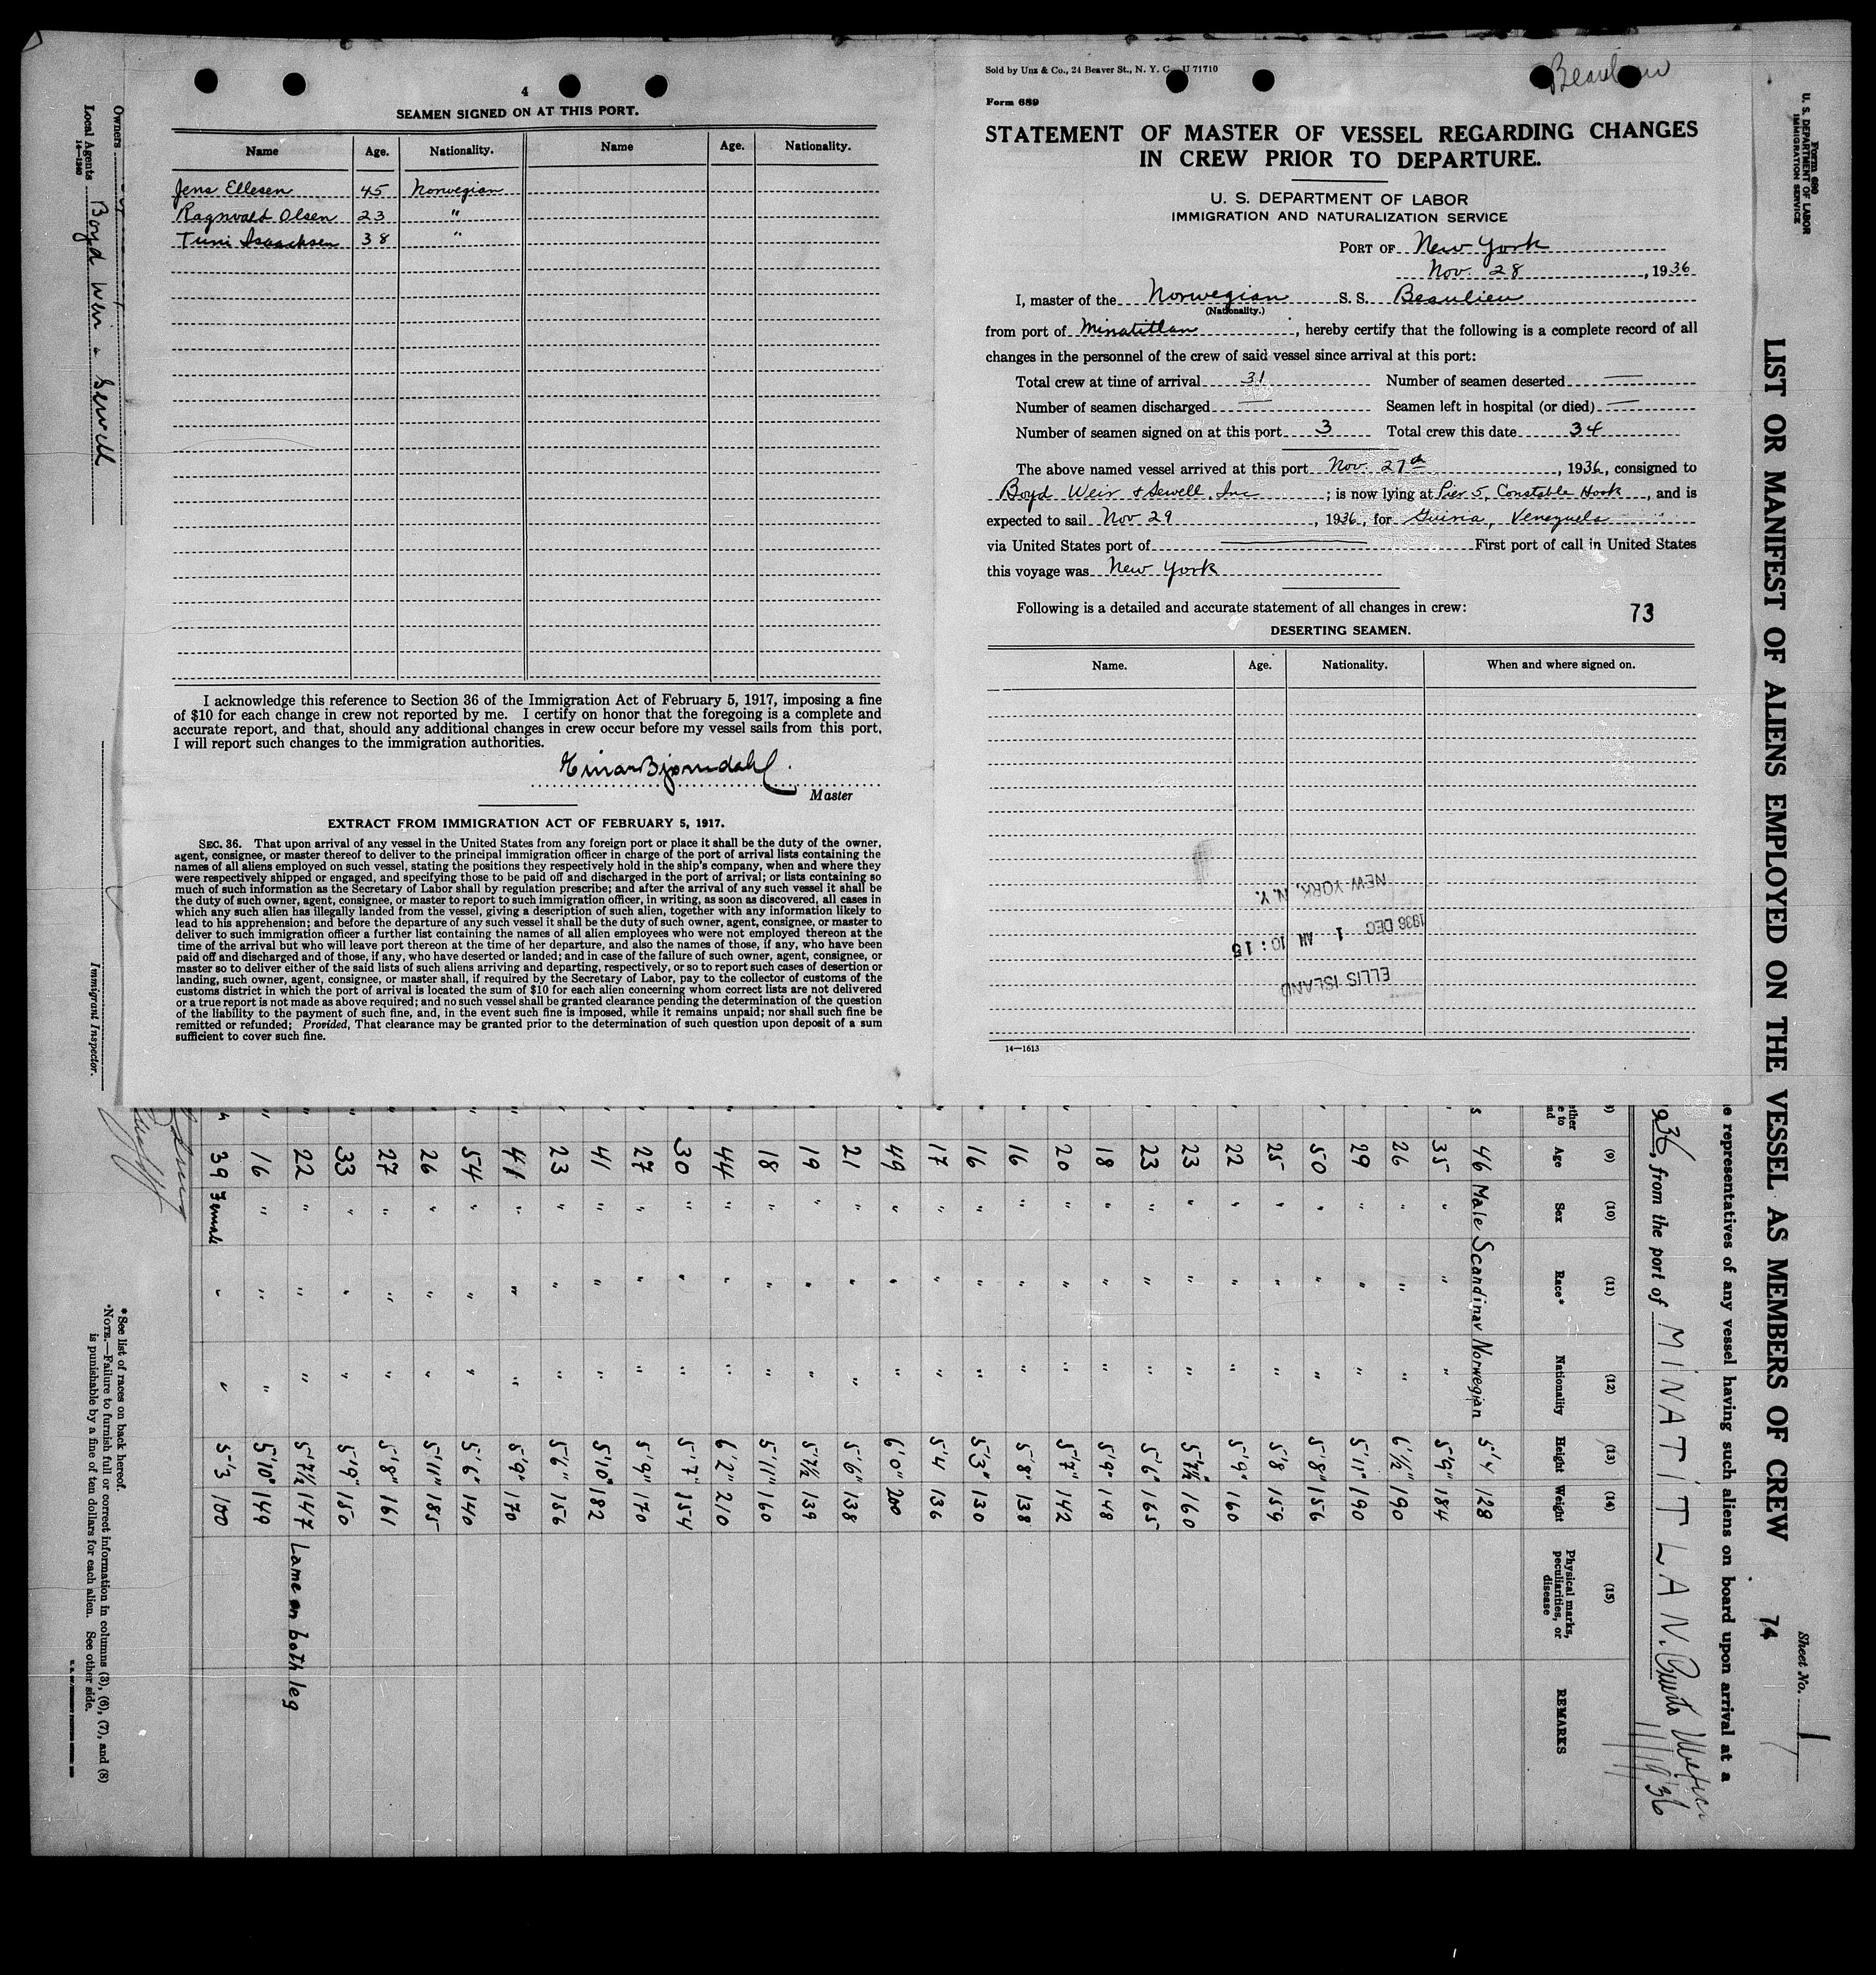 4
SEAMEN SIGNED ON AT THIS PORT.
Name Age. Nationality. Name Age. Nationality.
Jens Ellesen 45 Norwegian
Ragnvald Olsen 23 "
Tuni Isaachsen 38 "
I acknowledge this reference to Section 36 of the Immigration Act of February 5, 1917, imposing a fine
of $10 for each change in crew not reported by me. I certify on honor that the foregoing is a complete and
accurate report, and that, should any additional changes in crew occur before my vessel sails from this port,
I will report such changes to the immigration authorities.
Einar Bjørndahl.
Master
EXTRACT FROM IMMIGRATION ACT OF FEBRUARY 5, 1917.
SEC. 36. That upon arrival of any vessel in the United States from any foreign port or place it shall be the duty of the owner,
agent, consignee, or master thereof to deliver to the principal immigration officer in charge of the port of arrival lists containing the
names of all aliens employed on such vessel, stating the positions they respectively hold in the ship's company, when and where they
were respectively shipped or engaged, and specifying those to be paid off and discharged in the port of arrival; or lists containing so
much of such information as the Secretary of Labor shall by regulation prescribe; and after the arrival of any such vessel it shall be
the duty of such owner, agent, consignee, or master to report to such immigration officer, in writing, as soon as discovered, all cases in
which any such alien has illegally landed from the vessel, giving a description of such alien, together with any information likely to
lead to his apprehension; and before the departure of any such vessel it shall be the duty of such owner, agent, consignee, or master to
deliver to such immigration officer a further list containing the names of all alien employees who were not employed thereon at the
time of the arrival but who will leave port thereon at the time of her departure, and also the names of those, if any, who have been
paid off and discharged and of those, if any, who have deserted or landed; and in case of the failure of such owner, agent, consignee, or
master so to deliver either of the said lists of such aliens arriving and departing, respectively, or so to report such cases of desertion or
landing, such owner, agent, consignee, or master shall, if required by the Secretary of Labor, pay to the collector of customs of the
customs district in which the port of arrival is located the sum of $10 for each alien concerning whom correct lists are not delivered
or a true report is not made as above required; and no such vessel shall be granted clearance pending the determination of the question
of the liability to the payment of such fine, and, in the event such fine is imposed, while it remains unpaid; nor shall such fine be
remitted or refunded; Provided, That clearance may be granted prior to the determination of such question upon deposit of a sum
sufficient to cover such fine.
Sold by Unz & Co., 24 Beaver St., N. Y. C. U 71710
Beaulieu
Form 689
STATEMENT OF MASTER OF VESSEL REGARDING CHANGES
IN CREW PRIOR TO DEPARTURE.
U. S. DEPARTMENT OF LABOR
IMMIGRATION AND NATURALIZATION SERVICE
PORT OF New York
Nov. 28, 1936
I, master of the Norwegian S. S. Beaulieu
(Nationality.)
from port of Minatitlan, hereby certify that the following is a complete record of all
changes in the personnel of the crew of said vessel since arrival at this port:
Total crew at time of arrival 31 Number of seamen deserted —
Number of seamen discharged — Seamen left in hospital (or died) —
Number of seamen signed on at this port 3 Total crew this date 34
The above named vessel arrived at this port Nov. 27th, 1936, consigned to
Boyd Weir & Sewell, Inc; is now lying at Pier 5, Constable Hook, and is
expected to sail Nov 29, 1936, for Guiria, Venezuela
via United States port of — First port of call in United States
this voyage was New York
Following is a detailed and accurate statement of all changes in crew: 73
DESERTING SEAMEN.
Name. Age. Nationality. When and where signed on.
ELLIS ISLAND
1936 DEC 1 AM 10:15
NEW YORK, N. Y.
14—1613
Form 680
U. S. DEPARTMENT OF LABOR
IMMIGRATION SERVICE
Sheet No. 1
LIST OR MANIFEST OF ALIENS EMPLOYED ON THE VESSEL AS MEMBERS OF CREW 74
representatives of any vessel having such aliens on board upon arrival at a
936, from the port of MINATITLAN. Puerto Mexico
11/19/36
(9) (10) (11) (12) (13) (14) (15)
Age Sex Race* Nationality Height Weight Physical marks, peculiarities, or disease REMARKS
46 Male Scandinav Norwegian 5'4 128
35 " " " 5'9" 184
26 " " " 6'½" 190
29 " " " 5'11" 190
50 " " " 5'8" 156
25 " " " 5'8 159
22 " " " 5'9" 160
23 " " " 5'7½" 160
23 " " " 5'6" 165
18 " " " 5'9" 148
20 " " " 5'7" 142
16 " " " 5'8" 138
16 " " " 5'3" 130
17 " " " 5'4 136
49 " " " 6'0" 200
21 " " " 5'6" 138
19 " " " 5'7½ 139
18 " " " 5'11" 160
44 " " " 6'2" 210
30 " " " 5'7" 154
27 " " " 5'9" 170
41 " " " 5'10" 182
23 " " " 5'6" 156
41 " " " 5'9" 170
54 " " " 5'6" 140
26 " " " 5'11" 185
27 " " " 5'8" 161
33 " " " 5'9" 150
22 " " " 5'7½ 147 Lame on both leg
16 " " " 5'10" 149
39 Female " " 5'3 100
Owners
Local Agents Boyd Weir & Sewell
14—1240
Immigrant Inspector.
*See list of races on back hereof.
NOTE.—Failure to furnish full or correct information in columns (3), (6), (7), and (8)
is punishable by a fine of ten dollars for each alien. See other side.